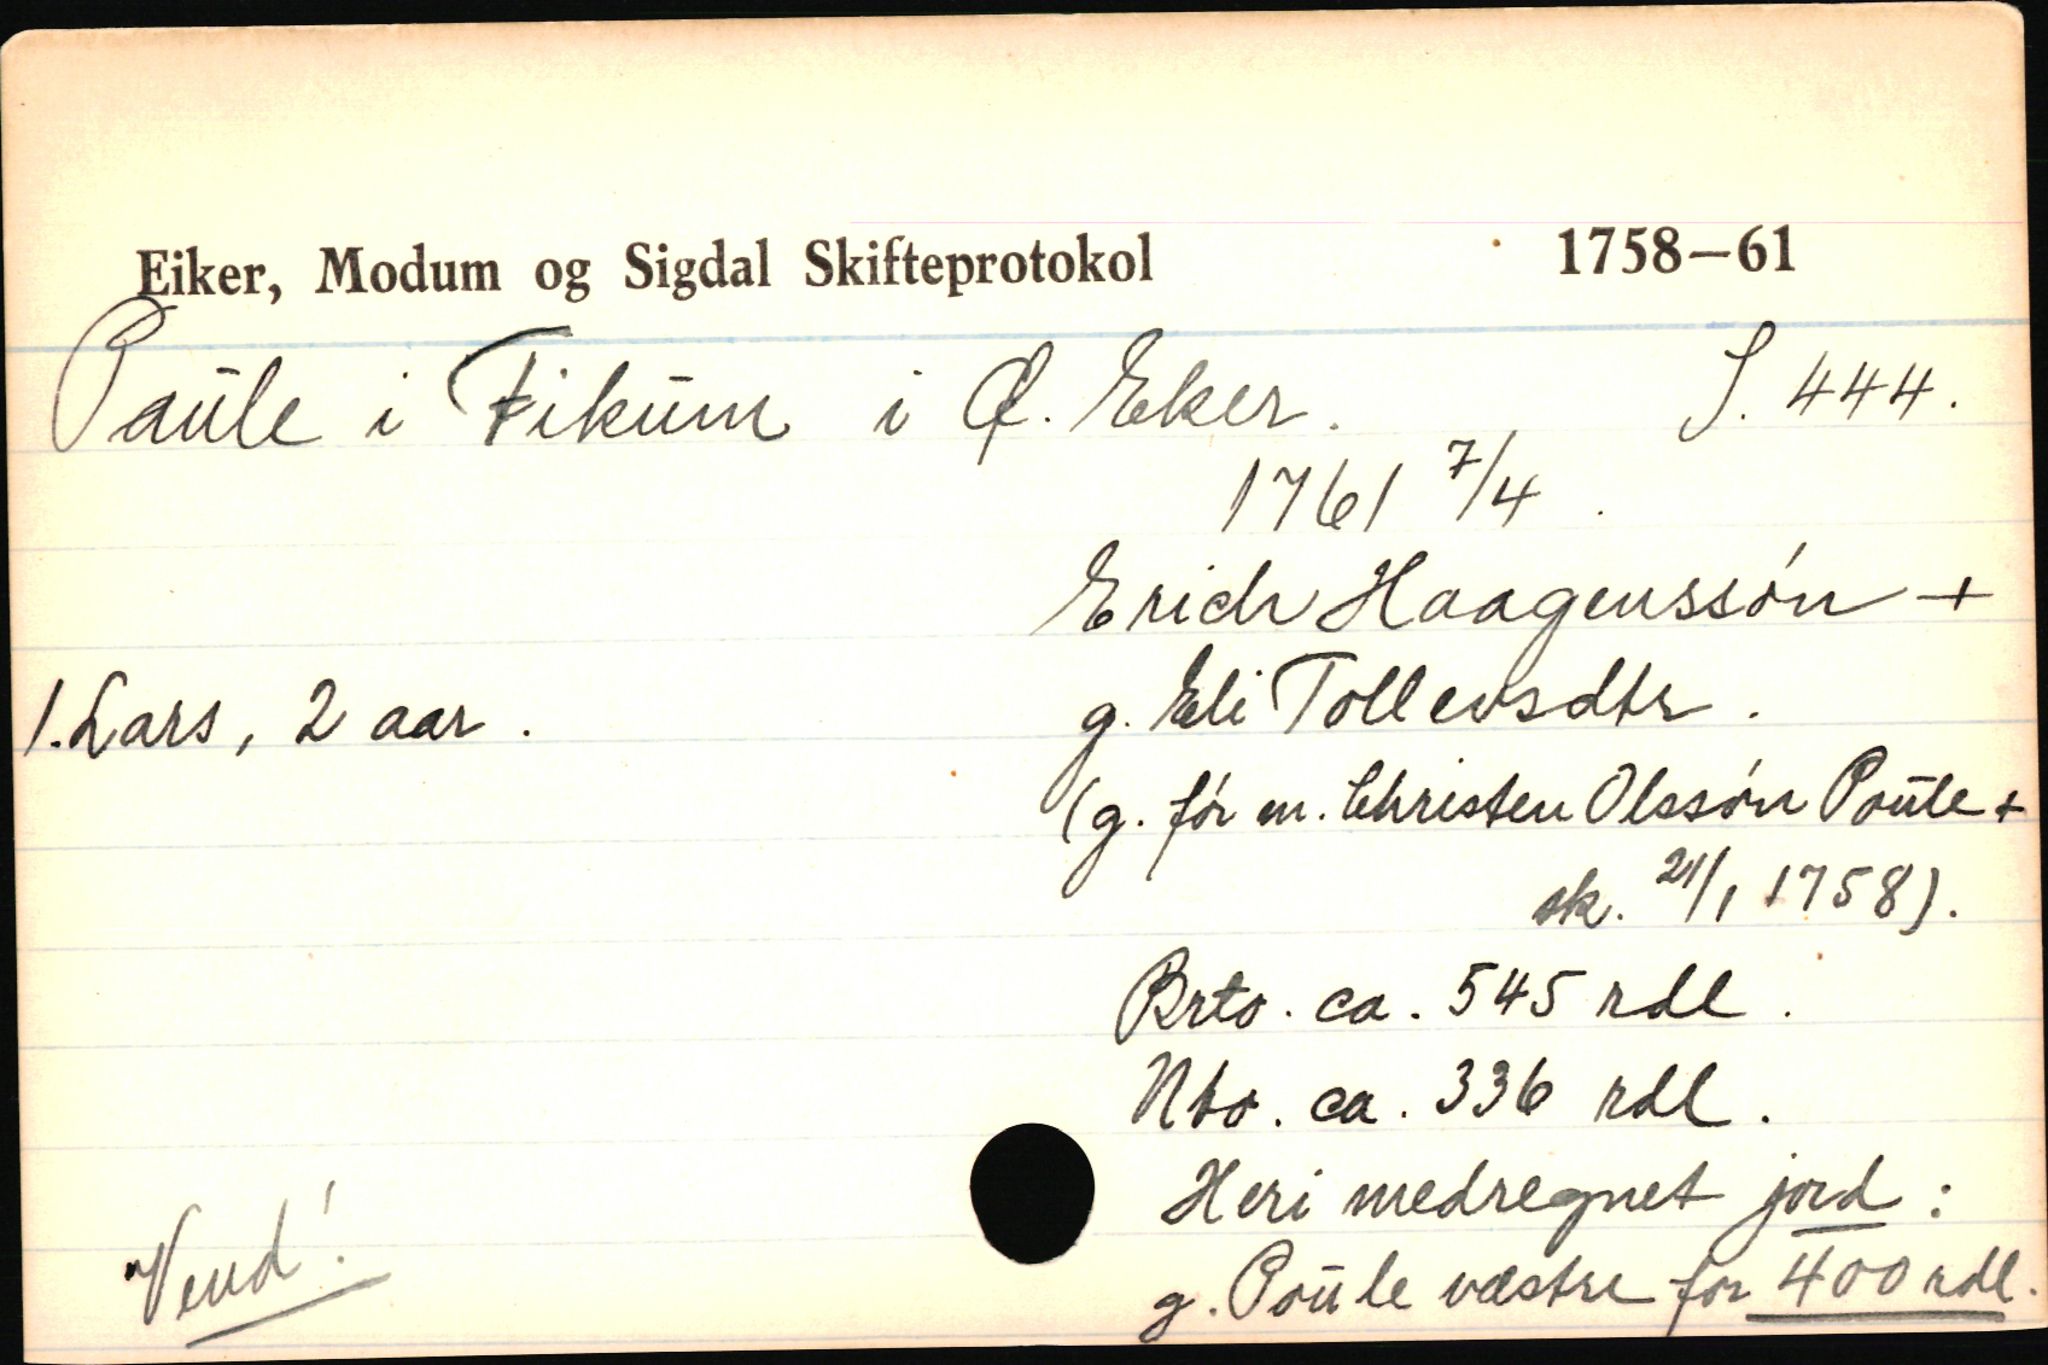 Eiker, Modum og Sigdal Skifteprotokol 1758–61
Paüle i Fiküm i Ø. Eker. S. 444.
1761 7/4.
Erich Haagenssón +
1. Lars, 2 aar.
g. Eli Tollevsdtr.
(g. fór m. Christen Olssón Poüle +
sk. 21/1 1758).
Brto. ca. 545 rdl.
Nto. ca. 336 rdl.
Heri medregnet jord:
g. Poüle væstre for 400 rdl.
Vend!